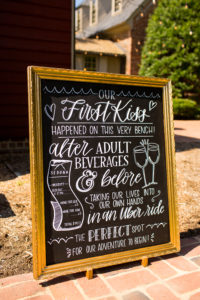 OUR
First Kiss
HAPPENED ON THIS VERY BENCH!
after ADULT
BEVERAGES
& before
TAKING OUR LIVES INTO
OUR OWN HANDS
in an Uber ride
THE PERFECT SPOT
FOR OUR ADVENTURE TO BEGIN!